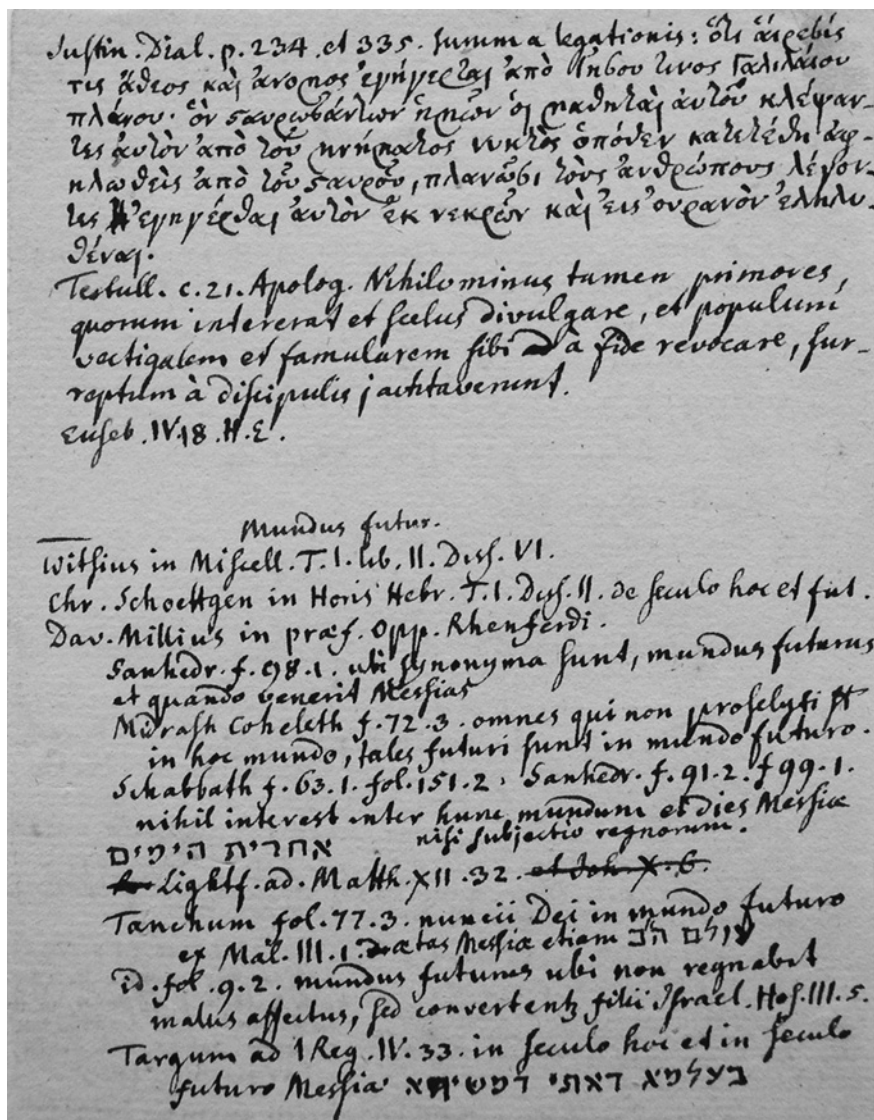 Justin. Dial. p. 234. et 335. summa legationis: ὅτι ἅιρεσίς
τις ἄθεος καὶ ἄνομος ἐγήγερται ἀπὸ Ἰησοῦ τινος Γαλιλαίου
πλάνου· ὃν ϛαυρωσάντων ἡμῶν ὁι μαθηταὶ ἀυτοῦ κλέψαν-
τες ἀυτὸν ἀπὸ τοῦ μνήματος νυκτὸς ὁπόθεν κατετέθη ἀφ-
ηλωθεὶς ἀπὸ τοῦ ϛαυροῦ, πλανῶσι τοὺς ἀνθρώπους λέγον-
τες ἐγηγέρθαι ἀυτὸν ἐκ νεκρῶν καὶ εις ὀυρανὸν ἐληλυ-
θέναι.
Tertull. c. 21. Apolog. Nihilominus tamen primores,
quorum intererat et scelus divulgare, et populum
vectigalem et famularem sibi à fide revocare, sur-
reptum à discipulis jactitaverunt.
Euseb. IV. 18. H. E.
Mundus futur.
Witsius in Miscell. T. I. lib. II. Diss. VI.
Chr. Schoettgen in Horis Hebr. T. I. Diss. II. de seculo hoc et fut.
Dav. Millius in præf. Opp. Rhenferdi.
Sanhedr. f. 98. 1. ubi synonyma sunt, mundus futurus
et quando venerit Messias
Midrash Coheleth f. 72. 3. omnes qui non proselyti st
in hoc mundo, tales futuri sunt in mundo futuro.
Schabbath f. 63. 1. fol. 151. 2. Sanhedr. f. 91. 2. f 99. 1.
nihil interest inter hunc mundum et dies Messiæ
nisi subjectio regnorum.
אחרית הימים
Lightf. ad. Matth. XII. 32. et Joh. X. 6.
Tanchum fol. 77. 3. nuncii Dei in mundo futuro
ex Mal. III. 1. ætas Messiæ etiam עולם הב
id. fol. 9. 2. mundus futurus ubi non regnabit
malus affectus, sed convertentz filii Israel. Hos. III. 5.
Targum ad 1 Reg. IV. 33. in seculo hoc et in seculo
futuro Messiæ בעלמא דאתי דמשיחא